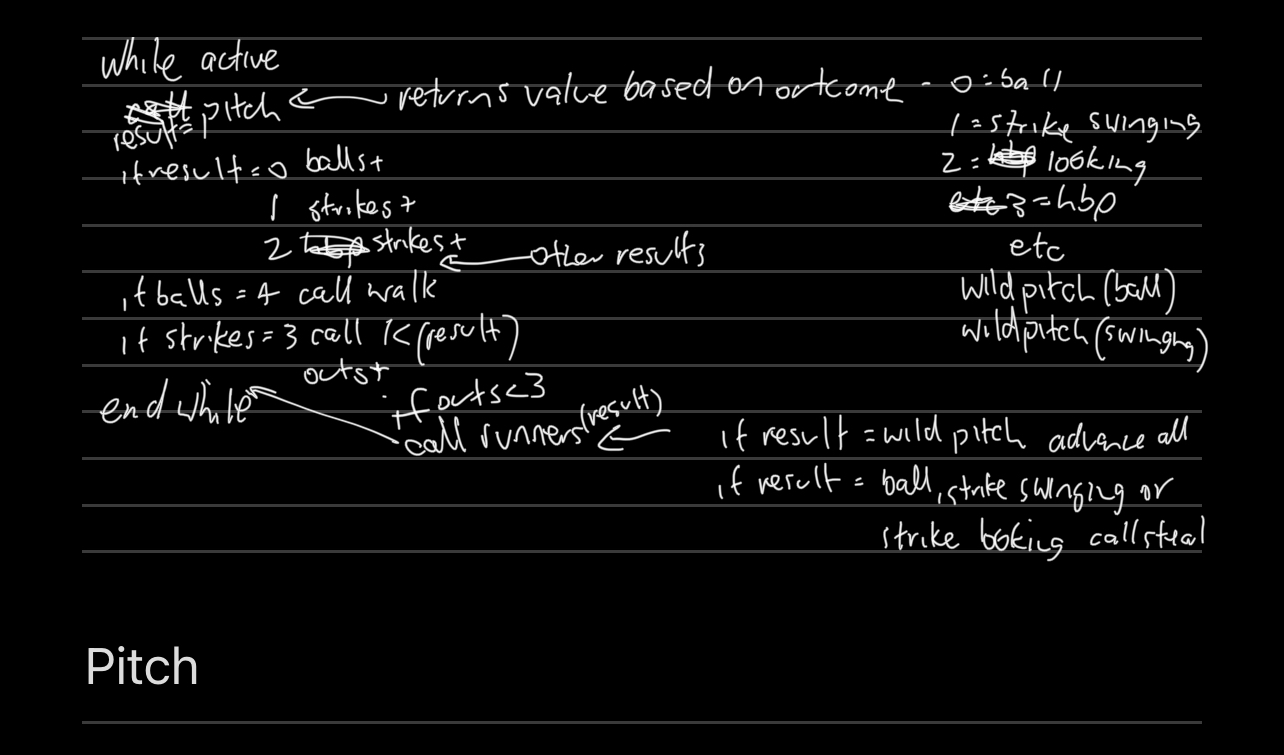 while active
pitch ← returns value based on outcome - 0 = ball
result =
1 = strike swinging
if result = 0 balls+
2 = looking
1 strikes+
3 = hbp
2 strikes+ ← other results
etc
if balls = 4 call walk
wild pitch (ball)
if strikes = 3 call K (result)
wild pitch (swinging)
outs+
if outs < 3
end while
call runners (result) ←
if result = wild pitch advance all
if result = ball, strike swinging or
strike looking call steal
Pitch